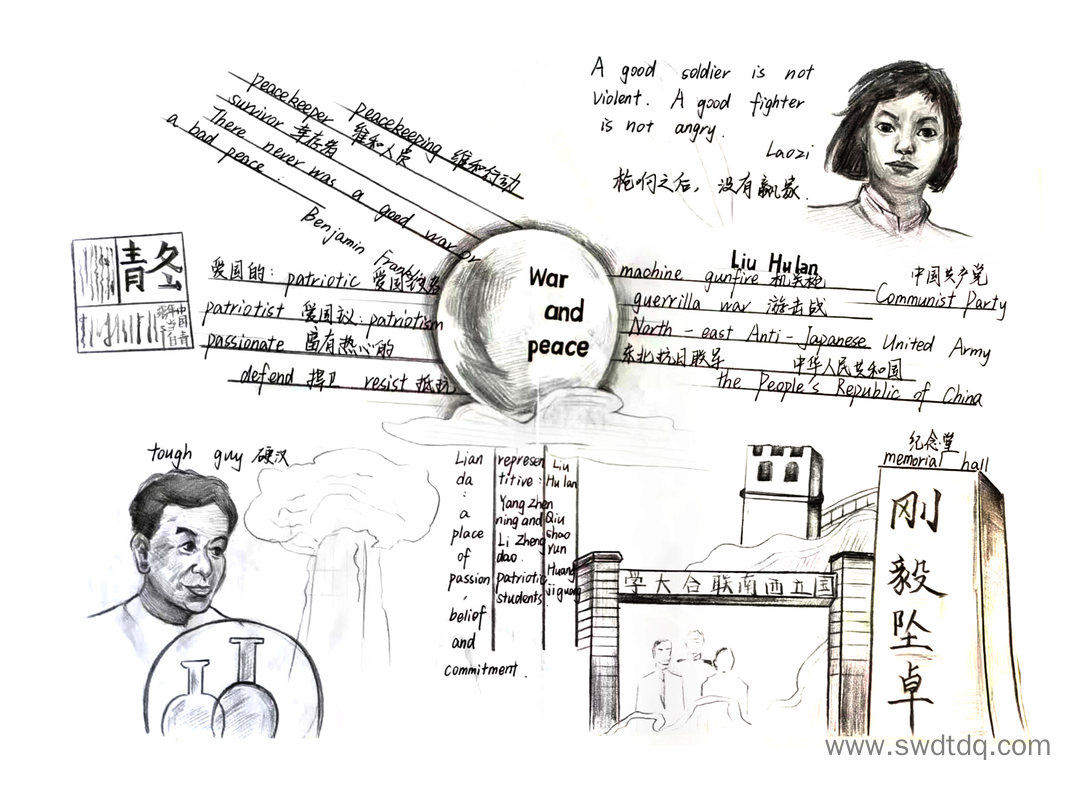 peacekeeper peacekeeping 维和行动
survivor 幸存者 维和人员
There never was a good war or
a bad peace.
Benjamin Franklin
A good soldier is not
violent. A good fighter
is not angry.
Laozi
枪响之后，没有赢家.
War
and
peace
爱国的: patriotic
patriotist 爱国议: patriotism
passionate 富有热心的
defend 捍卫 resist 抵抗
Liu Hulan
machine gunfire 机关枪
中国共产党
Communist Party
guerrilla war 游击战
North-east Anti-Japanese United Army
东北抗日联军
中华人民共和国
the People's Republic of China
tough guy 硬汉
Lian
da
:
a
place
of
passion,
belief
and
commitment.
represen
titive:
Yang Zhen
ning and
Li Zheng
dao.
patriotic
students.
Liu
Hulan
Qiu
shao
yun
Huang
jiguang
纪念堂
memorial hall
国立西南联合大学
刚
毅
坠
卓
www.swdtdq.com